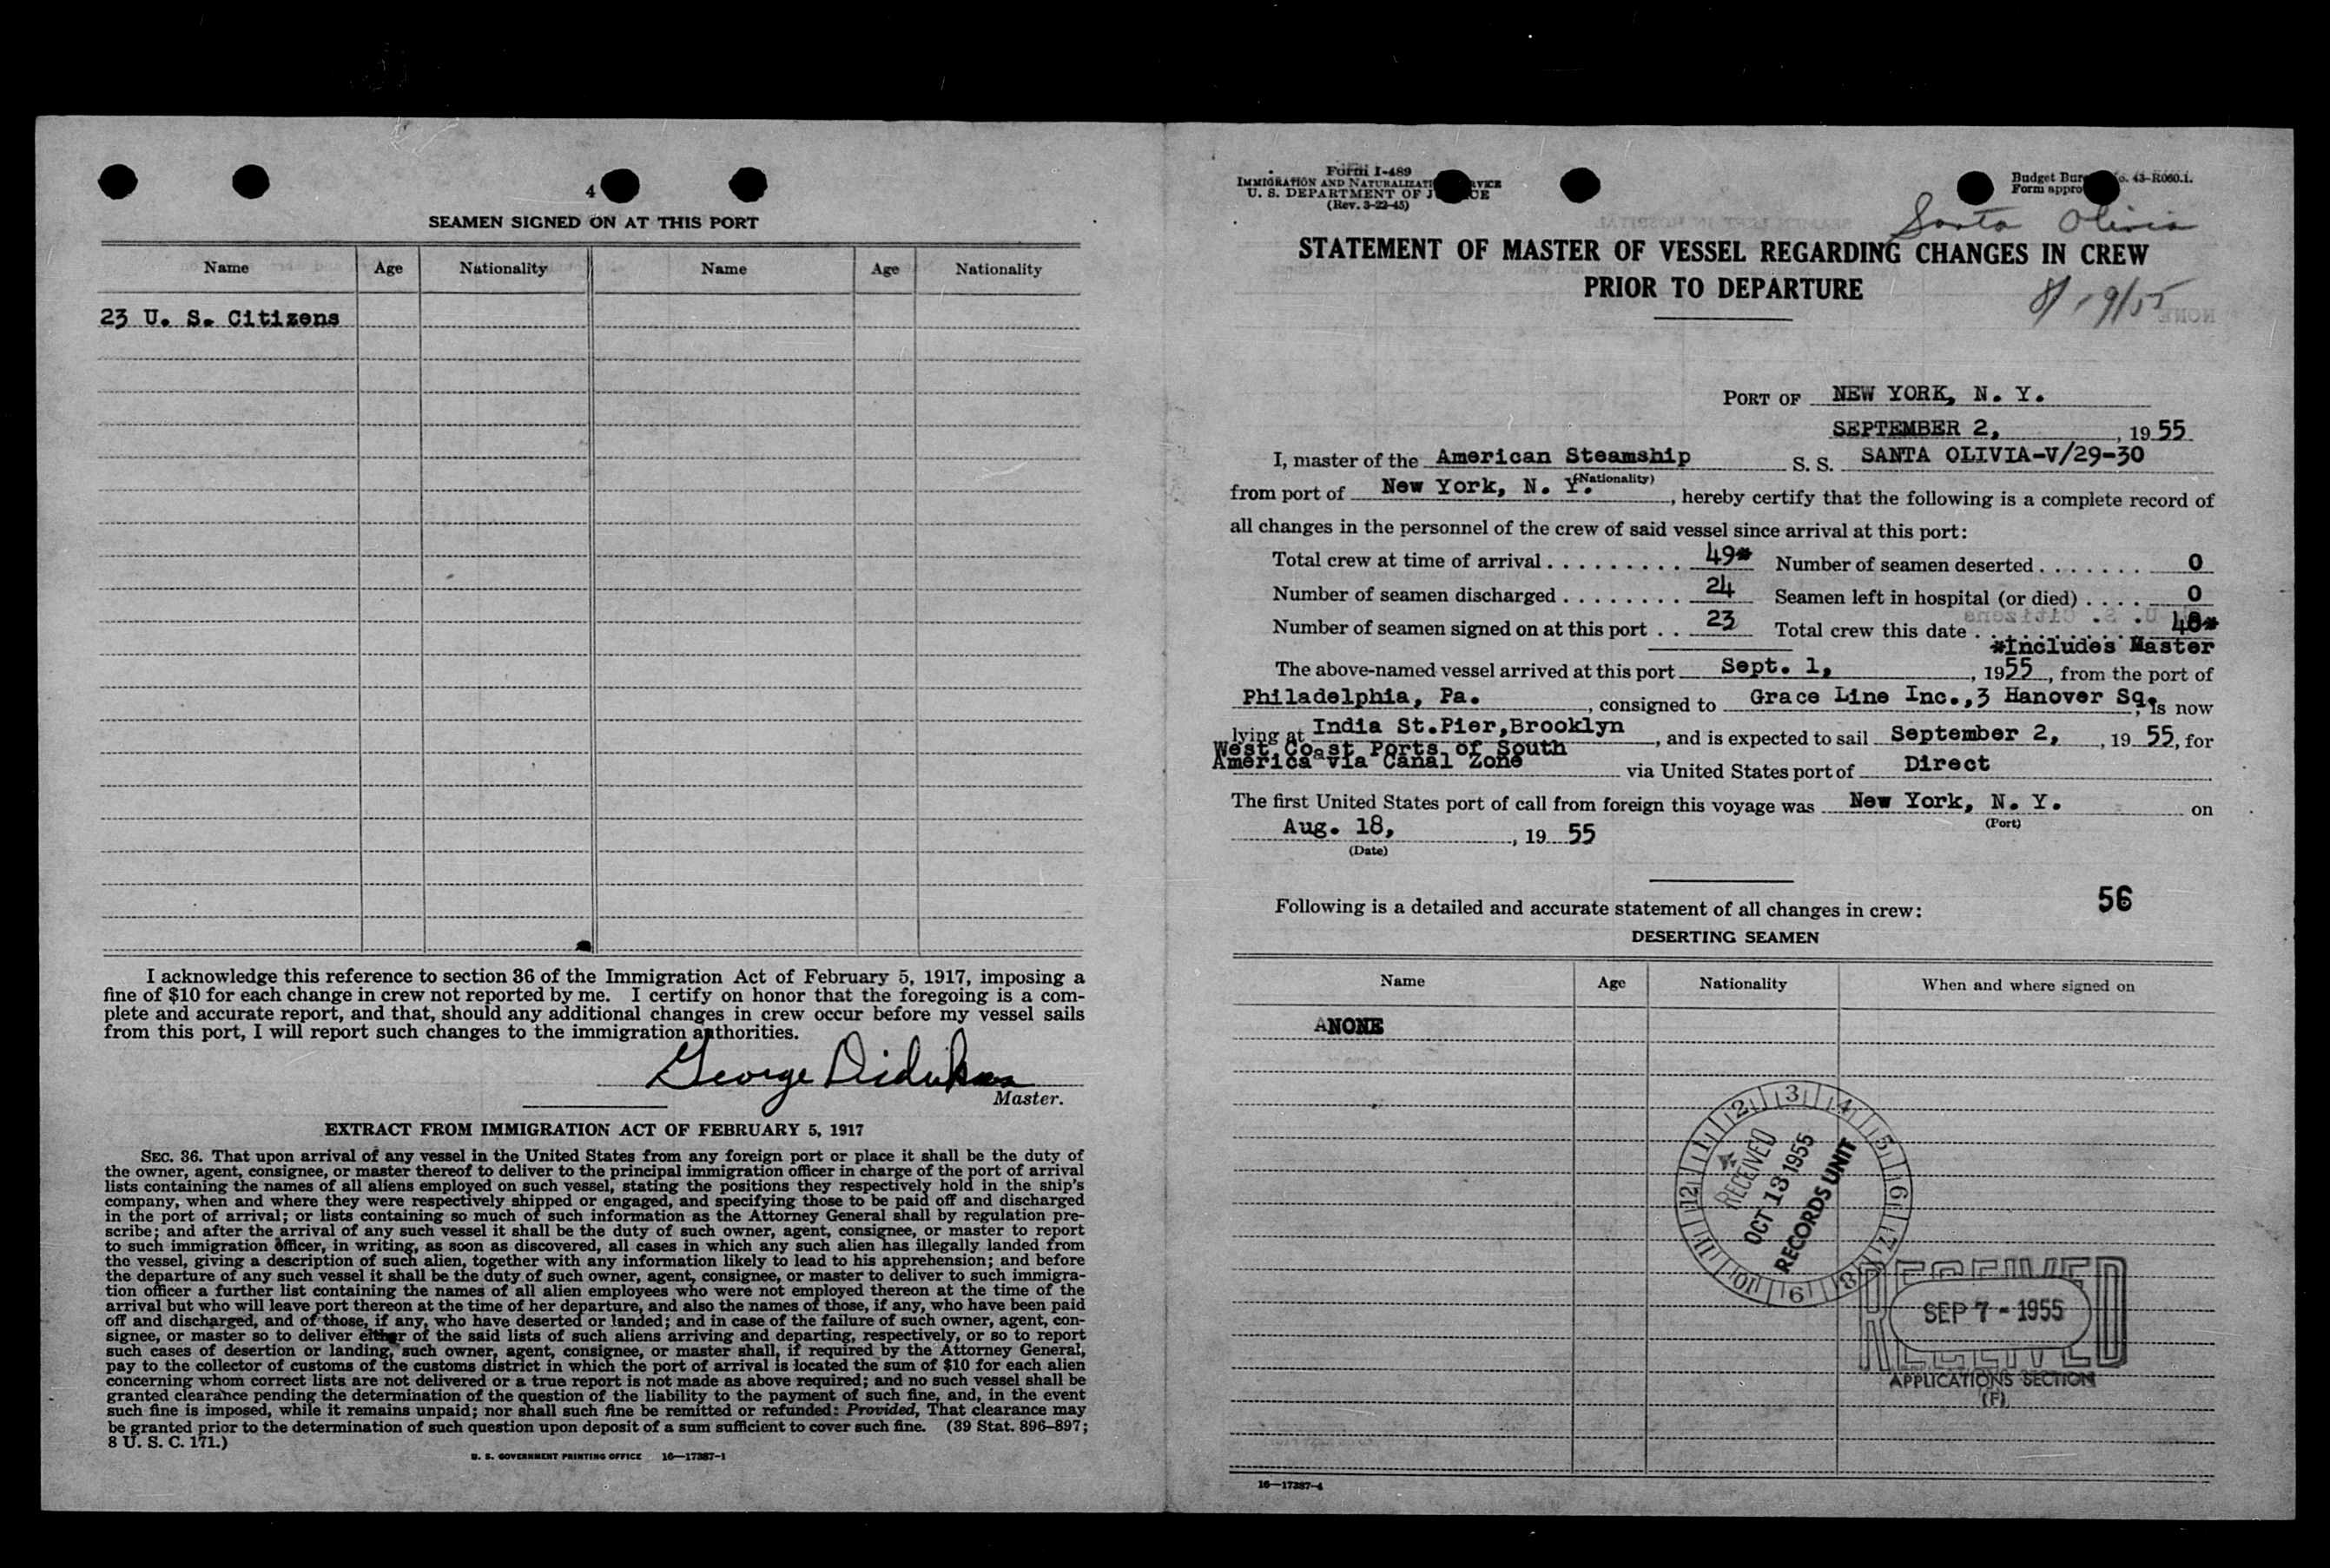 4
SEAMEN SIGNED ON AT THIS PORT
Name Age Nationality Name Age Nationality
23 U. S. Citizens
I acknowledge this reference to section 36 of the Immigration Act of February 5, 1917, imposing a
fine of $10 for each change in crew not reported by me. I certify on honor that the foregoing is a com-
plete and accurate report, and that, should any additional changes in crew occur before my vessel sails
from this port, I will report such changes to the immigration authorities.
George
Master.
EXTRACT FROM IMMIGRATION ACT OF FEBRUARY 5, 1917
SEC. 36. That upon arrival of any vessel in the United States from any foreign port or place it shall be the duty of
the owner, agent, consignee, or master thereof to deliver to the principal immigration officer in charge of the port of arrival
lists containing the names of all aliens employed on such vessel, stating the positions they respectively hold in the ship's
company, when and where they were respectively shipped or engaged, and specifying those to be paid off and discharged
in the port of arrival; or lists containing so much of such information as the Attorney General shall by regulation pre-
scribe; and after the arrival of any such vessel it shall be the duty of such owner, agent, consignee, or master to report
to such immigration officer, in writing, as soon as discovered, all cases in which any such alien has illegally landed from
the vessel, giving a description of such alien, together with any information likely to lead to his apprehension; and before
the departure of any such vessel it shall be the duty of such owner, agent, consignee, or master to deliver to such immigra-
tion officer a further list containing the names of all alien employees who were not employed thereon at the time of the
arrival but who will leave port thereon at the time of her departure, and also the names of those, if any, who have been paid
off and discharged, and of those, if any, who have deserted or landed; and in case of the failure of such owner, agent, con-
signee, or master so to deliver either of the said lists of such aliens arriving and departing, respectively, or so to report
such cases of desertion or landing, such owner, agent, consignee, or master shall, if required by the Attorney General,
pay to the collector of customs of the customs district in which the port of arrival is located the sum of $10 for each alien
concerning whom correct lists are not delivered or a true report is not made as above required; and no such vessel shall be
granted clearance pending the determination of the question of the liability to the payment of such fine, and, in the event
such fine is imposed, while it remains unpaid; nor shall such fine be remitted or refunded: Provided, That clearance may
be granted prior to the determination of such question upon deposit of a sum sufficient to cover such fine. (39 Stat. 896–897;
8 U. S. C. 171.)
U. S. GOVERNMENT PRINTING OFFICE 16—17387-1
Form I-489
IMMIGRATION AND
U. S. DEPARTMENT OF
(Rev. 3-22-45)
Budget 43-R060.1.
Form
Santa Olivia
STATEMENT OF MASTER OF VESSEL REGARDING CHANGES IN CREW
PRIOR TO DEPARTURE
PORT OF NEW YORK, N. Y.
SEPTEMBER 2, , 19 55
I, master of the American Steamship S. S. SANTA OLIVIA-V/29-30
(Nationality)
from port of New York, N. Y. , hereby certify that the following is a complete record of
all changes in the personnel of the crew of said vessel since arrival at this port:
Total crew at time of arrival . . . . . . . . . 49* Number of seamen deserted . . . . . . . 0
Number of seamen discharged . . . . . . . . 24 Seamen left in hospital (or died) . . . . 0
Number of seamen signed on at this port . . 23 Total crew this date . . . . . . . . . . 48*
*Includes Master
The above-named vessel arrived at this port Sept. 1, , 1955 , from the port of
Philadelphia, Pa. , consigned to Grace Line Inc.,3 Hanover Sq. , is now
lying at India St.Pier,Brooklyn , and is expected to sail September 2, , 19 55, for
West Coast Ports of South
America via Canal Zone via United States port of Direct
The first United States port of call from foreign this voyage was New York, N. Y. on
(Port)
Aug. 18, , 19 55
(Date)
56
Following is a detailed and accurate statement of all changes in crew:
DESERTING SEAMEN
Name Age Nationality When and where signed on
ANONE
RECEIVED
OCT 13 1955
RECORDS UNIT
1 2 3 4 5 6 7 8 9 10 11 12
RECEIVED
SEP 7 - 1955
RECEIVED
APPLICATIONS SECTION
(F)
16—17387-4